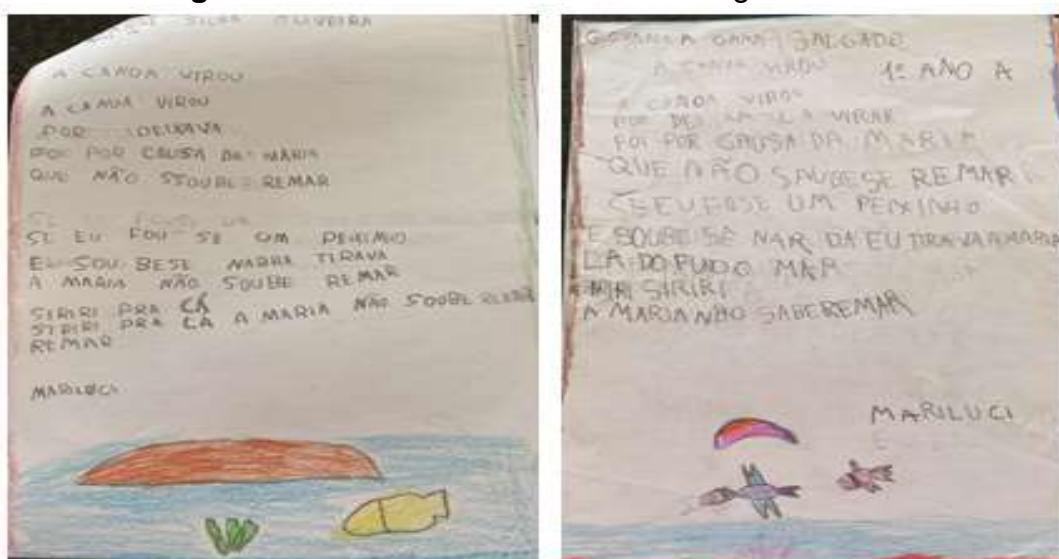 SILVA OLIVEIRA
A CANOA VIROU
A CANOA VIROU
POR DEIXAVA
FOI POR CAUSA DA MARIA
QUE NÃO SSOUBE REMAR
SE EU FOU SE UM PEIXIMO
EU SOU BESE NADRA TIRAVA
A MARIA NÃO SOUBE REMAR
SIRIRI PRA CÁ
SIRIRI PRA LÁ A MARIA NÃO SOUBE
REMAR
MARILUCI
SALGADO
A CANOA VIROU 1º ANO A
A CANOA VIROU
POR VIRAR
FOI POR CAUSA DA MARIA
QUE NÃO SAUBESE REMAR
UM PEIXINHO
E SOUBE SE NAR DA EU TIRAVA A MARIA
LÁ DO FUDO MAR
SIRIRI
A MARIA NÃO SABEREMAR
MARILUCI